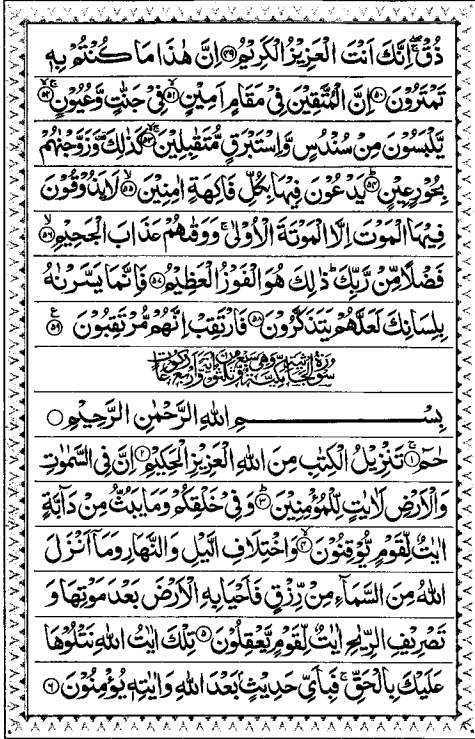 ذُقْ ۚۙ اِنَّكَ اَنْتَ الْعَزِيْزُ الْكَرِيْمُ ﴿۴۹﴾ اِنَّ هٰذَا مَا كُنْتُمْ بِهٖ
تَمْتَرُوْنَ ﴿۵۰﴾ اِنَّ الْمُتَّقِيْنَ فِىْ مَقَامٍ اَمِيْنٍ ۙ﴿۵۱﴾ فِىْ جَنّٰتٍ وَّعُيُوْنٍ ۚۙ﴿۵۲﴾
يَّلْبَسُوْنَ مِنْ سُنْدُسٍ وَّاِسْتَبْرَقٍ مُّتَقٰبِلِيْنَ ۚۙ﴿۵۳﴾ كَذٰلِكَ ۫ وَزَوَّجْنٰهُمْ
بِحُوْرٍ عِيْنٍ ؕ﴿۵۴﴾ يَدْعُوْنَ فِيْهَا بِكُلِّ فَاكِهَةٍ اٰمِنِيْنَ ۙ﴿۵۵﴾ لَا يَذُوْقُوْنَ
فِيْهَا الْمَوْتَ اِلَّا الْمَوْتَةَ الْاُوْلٰى ۚ وَوَقٰٮهُمْ عَذَابَ الْجَحِيْمِ ۙ﴿۵۶﴾
فَضْلًا مِّنْ رَّبِّكَ ؕ ذٰ لِكَ هُوَ الْفَوْزُ الْعَظِيْمُ ﴿۵۷﴾ فَاِنَّمَا يَسَّرْنٰهُ
بِلِسَانِكَ لَعَلَّهُمْ يَتَذَكَّرُوْنَ ﴿۵۸﴾ فَارْتَقِبْ اِنَّهُمْ مُّرْتَقِبُوْنَ ﴿۵۹﴾ ع
سورة الجاثية مكية وهي سبع وثلثون اية واربع ركوعات
بِسْمِ اللهِ الرَّحْمٰنِ الرَّحِيْمِ ○
حٰمٓ ۚ﴿۱﴾ تَنْزِيْلُ الْكِتٰبِ مِنَ اللهِ الْعَزِيْزِ الْحَكِيْمِ ﴿۲﴾ اِنَّ فِى السَّمٰوٰتِ
وَالْاَرْضِ لَاٰيٰتٍ لِّلْمُؤْمِنِيْنَ ؕ﴿۳﴾ وَفِىْ خَلْقِكُمْ وَمَا يَبُثُّ مِنْ دَآبَّةٍ
اٰيٰتٌ لِّقَوْمٍ يُّوْقِنُوْنَ ۙ﴿۴﴾ وَاخْتِلَافِ الَّيْلِ وَالنَّهَارِ وَمَاۤ اَنْزَلَ
اللهُ مِنَ السَّمَآءِ مِنْ رِّزْقٍ فَاَحْيَا بِهِ الْاَرْضَ بَعْدَ مَوْتِهَا وَ
تَصْرِيْفِ الرِّيٰحِ اٰيٰتٌ لِّقَوْمٍ يَّعْقِلُوْنَ ﴿۵﴾ تِلْكَ اٰيٰتُ اللهِ نَتْلُوْهَا
عَلَيْكَ بِالْحَقِّ ۚ فَبِاَىِّ حَدِيْثٍۭ بَعْدَ اللهِ وَاٰيٰتِهٖ يُؤْمِنُوْنَ ﴿۶﴾